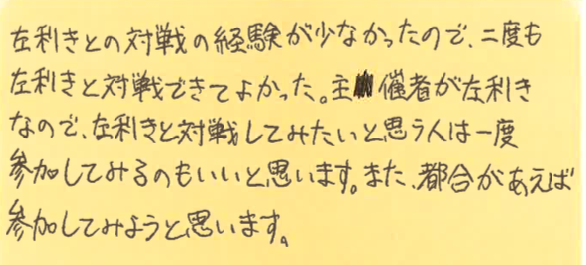 左利きとの対戦の経験が少なかったので、二度も
左利きと対戦できてよかった。主催者が左利き
なので、左利きと対戦してみたいと思う人は一度
参加してみるのもいいと思います。また、都合があえば
参加してみようと思います。